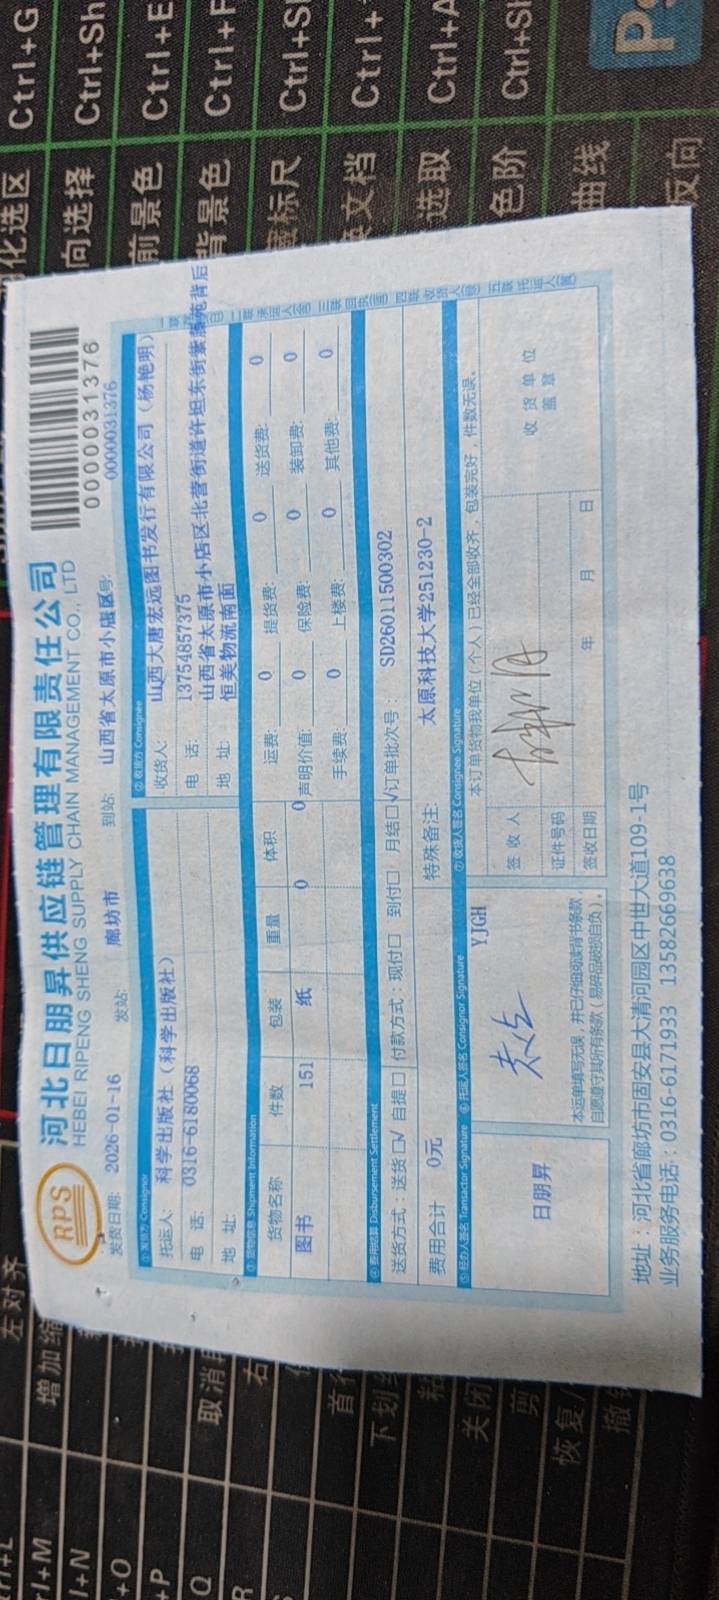 RPS
河北日朋昇供应链管理有限责任公司
HEBEI RIPENG SHENG SUPPLY CHAIN MANAGEMENT CO., LTD
0000031376
发货日期: 2026-01-16 发站: 廊坊市 到站: 山西省太原市小店区 号: 0000031376
① 发货方 Consignor
托运人: 科学出版社（科学出版社）
电 话: 0316-6180068
地 址:
② 收货方 Consignee
收货人: 山西大唐宏远图书发行有限公司（杨艳明）
电 话: 13754857375
地 址: 山西省太原市小店区北营街道许坦东街紫藤苑背后
恒美物流南面
③ 货物信息 Shipment Information
货物名称 件数 包装 重量 体积
图书 151 纸 0 0
运费: 0 提货费: 0 送货费: 0
声明价值: 0 保险费: 0 装卸费: 0
手续费: 0 上楼费: 0 其他费: 0
④ 费用结算 Disbursement Settlement
送货方式：送货☑ 自提□ 付款方式：现付□ 到付□ 月结☑ 订单批次号： SD26011500302
费用合计 0元 特殊备注: 太原科技大学251230-2
⑤ 经办人签名 Transactor Signature
日朋昇
⑥ 托运人签名 Consignor Signature
YJGH
本运单填写无误，并已仔细阅读背书条款，
自愿遵守其所有条款（易碎品破损自负）。
⑦ 收货人签名 Consignee Signature
本订单货物我单位（个人）已经全部收齐，包装完好，件数无误。
签 收 人
证件号码
签收日期 年 月 日
收 货 单 位
盖 章
地址：河北省廊坊市固安县大清河园区中世大道109-1号
业务服务电话：0316-6171933 13582669638
Ctrl+G
Ctrl+Sh
Ctrl+E
Ctrl+F
Ctrl+S
Ctrl+
Ctrl+A
Ctrl+S
Ps
化选区
向选择
前景色
背景色
标尺
文档
选取
色阶
曲线
反向
左对齐
增加缩
取消
右
首行
下划
粘
关闭
剪
恢复/
撤